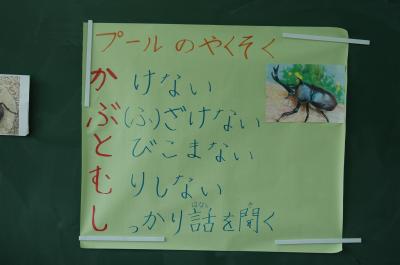 プールのやくそく
かけない
ぶ(ふ)ざけない
とびこまない
むりしない
しっかり話を聞く